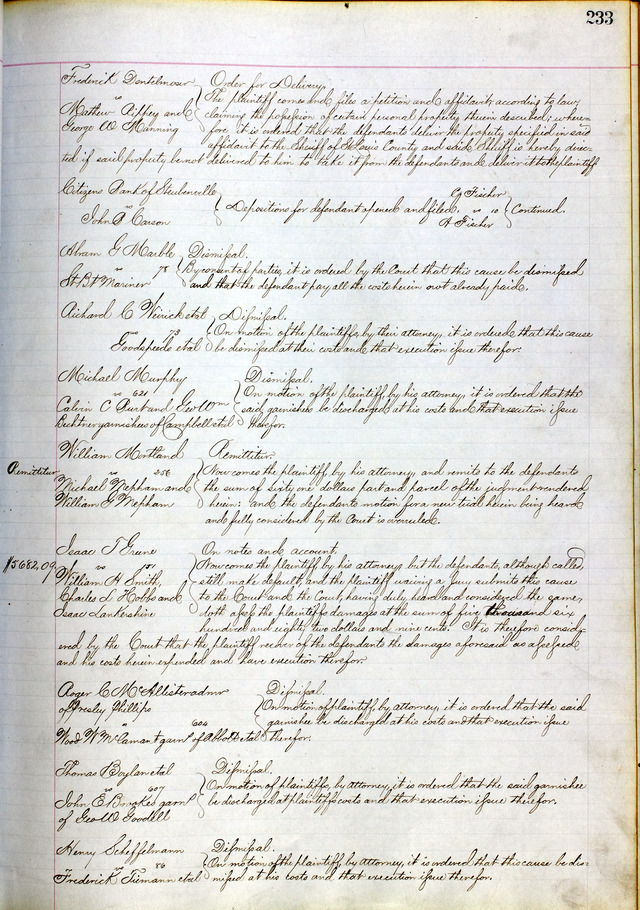 233
Frederick Dentelmoser Order for Delivery.
vs The plaintiff comes and files a petition and affidavit, according to law,
Mathew Rippey and claiming the possession of certain personal property therein described; where=
George W Manning fore it is ordered that the defendants deliver the property specified in said
affidavit to the Sheriff of St Louis County and said Sheriff is hereby direc=
ted if said property be not delivered to him to take it from the defendants and deliver it to the plaintiff
Citizens Bank of Steubenville G Fischer
vs Depositions for defendant opened and filed. vs 10 Continued.
John P Carson A Fischer
Abram G Marble Dismissal.
vs 78 By consent of parties, it is ordered by the Court that this cause be dismissed
St Bt Mariner and that the defendant pay all the costs herein not already paid.
Richard C Weirick et al Dismissal.
vs 73 On motion of the plaintiffs, by their attorney, it is ordered that this cause
Goodspeeds et al be dismissed at their costs and that execution issue therefor.
Michael Murphy Dismissal.
vs 621 On motion of the plaintiff, by his attorney, it is ordered that the
Calvin C Burt and Geo Wm said garnishees be discharged at his costs and that execution issue
garnishees of Campbell et al therefor.
William Mortland Remittitur.
Remittitur vs 256 Now comes the plaintiff by his attorney, and remits to the defendants
Michael Mepham and the sum of sixty one dollars part and parcel of the judgment rendered
William G Mepham herein: and the defendants motion for a new trial herein being heard
and fully considered by the Court is overruled.
Isaac T Greene On notes and account.
$5682.09 vs 151 Now comes the plaintiff by his attorney, but the defendants, although called,
William H Smith, still make default, and the plaintiff waiving a jury submits this cause
Charles L Hobbs and to the Court and the Court, having duly heard and considered the same,
Isaac Lankershine doth assess the plaintiffs damages at the sum of five thousand six
hundred and eighty two dollars and nine cents. It is therefore consid=
ered by the Court that the plaintiff recover of the defendants the damages aforesaid as assessed
and his costs herein expended and have execution therefor.
Roger C McAllister admr Dismissal.
of Presley Phillips On motion of plaintiff, by attorney, it is ordered that the said
vs 604 garnishee be discharged at his costs and that execution issue
Wood W McCamant garn of Abbott et al therefor.
Thomas Boylan et al Dismissal.
vs 607 On motion of plaintiffs, by attorney, it is ordered that the said garnishee
John E Brookes garn be discharged at plaintiffs costs and that execution issue therefor.
of Geo W Goodell
Henry Scheffelmann Dismissal.
vs 86 On motion of the plaintiff, by attorney, it is ordered that this cause be dis=
Frederick Tiemann et al missed at his costs and that execution issue therefor.